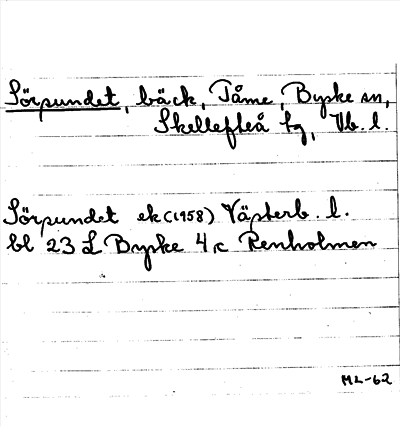 Sörpundet, bäck, Tåme, Byske sn,
Skellefteå tg, Vb. l.
Sörpundet ek (1958) Västerb. l.
bl 23 L Byske 4 c Renholmen
ML-62